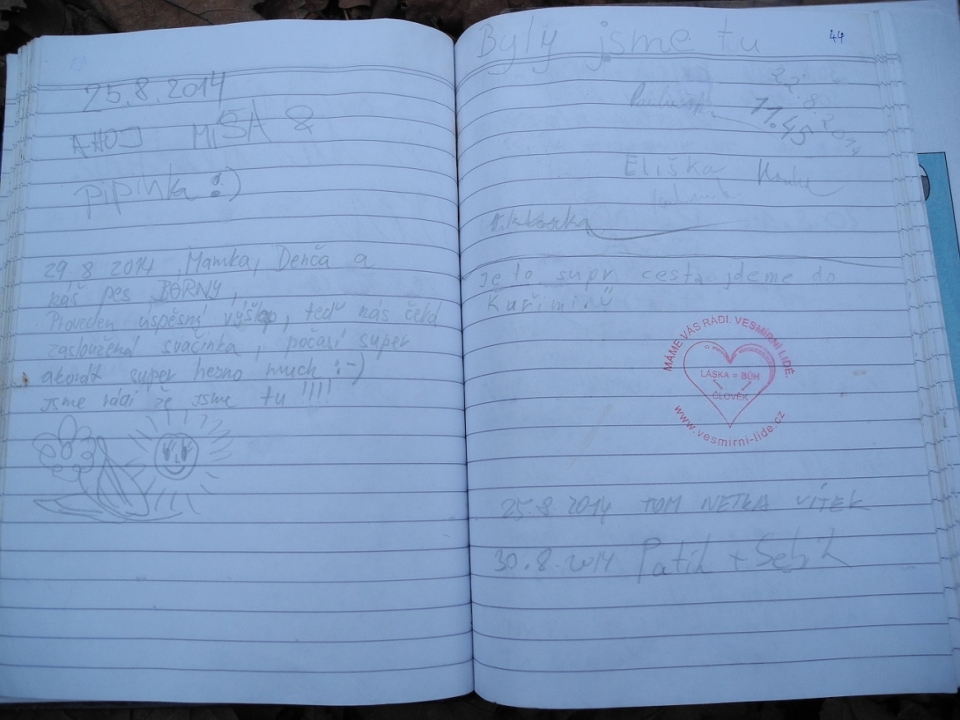 25.8.2014
AHOJ MÍŠA &
pipinka :)
29.8 2014 Mamka, Denča a
náš pes BORNY,
Proveden úspěšní výšlap, teď nás čeká
zasloužená svačinka, počasí super
akorát super hezno much :-)
jsme rádi že jsme tu !!!!
44
Byly jsme tu
22.8
2014
11.45
Eliška
Je to supr cesta jdeme do
Kuřimi
MÁME VÁS RÁDI. VESMÍRNÍ LIDÉ.
LÁSKA = BŮH
ČLOVĚK
www.vesmirni-lide.cz
25.8 2014 TOM NETKA VÍTEK
30.8.2014 Patik + Sebik